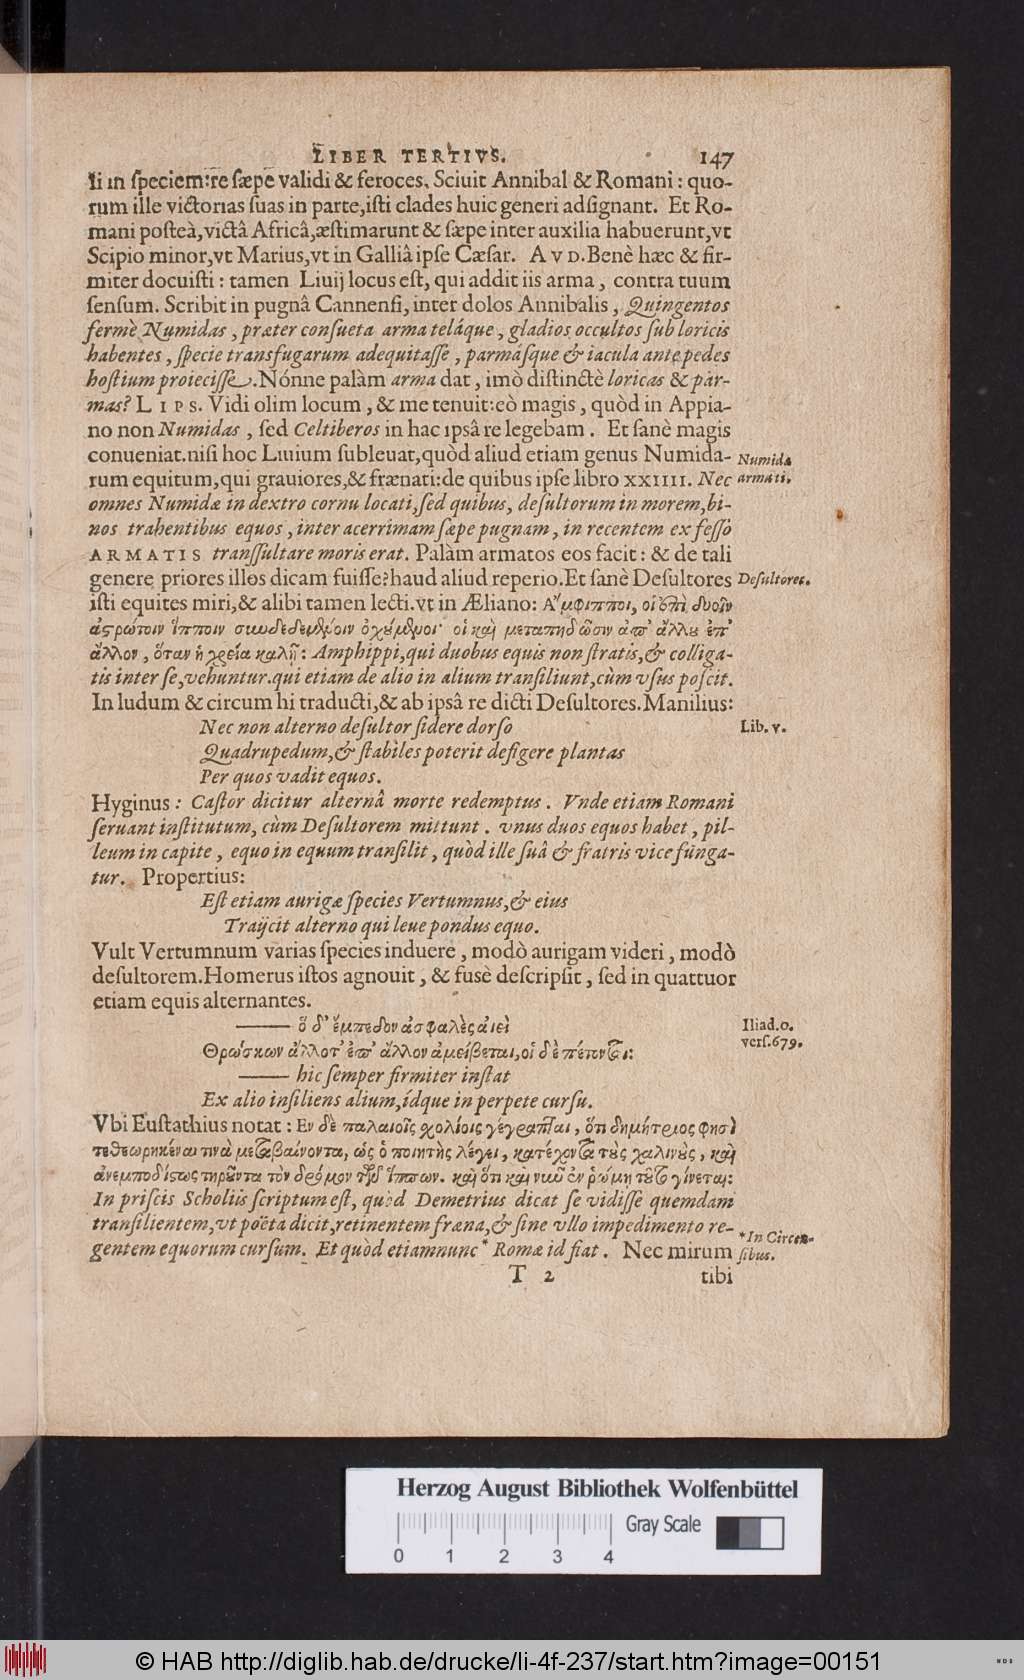 LIBER TERTIVS. 147
li in ſpeciem: re ſæpe validi & feroces. Sciuit Annibal & Romani: quo-
rum ille victorias ſuas in parte, iſti clades huic generi adſignant. Et Ro-
mani poſteà, victâ Africâ, æſtimarunt & ſæpe inter auxilia habuerunt, vt
Scipio minor, vt Marius, vt in Galliâ ipſe Cæſar. AVD. Benè hæc & fir-
miter docuiſti: tamen Liuij locus eſt, qui addit iis arma, contra tuum
ſenſum. Scribit in pugnâ Cannenſi, inter dolos Annibalis, Quingentos
fermè Numidas, præter conſueta arma teláque, gladios occultos ſub loricis
habentes, ſpecie transfugarum adequitaſſe, parmáſque & iacula ante pedes
hoſtium proieciſſe. Nónne palàm arma dat, imò diſtinctè loricas & par-
mas? LIPS. Vidi olim locum, & me tenuit: eò magis, quòd in Appia-
no non Numidas, ſed Celtiberos in hac ipsâ re legebam. Et ſanè magis
conueniat. niſi hoc Liuium ſubleuat, quòd aliud etiam genus Numida-
rum equitum, qui grauiores, & frænati: de quibus ipſe libro XXIIII. Nec
omnes Numidæ in dextro cornu locati, ſed quibus, deſultorum in morem, bi-
nos trahentibus equos, inter acerrimam ſæpe pugnam, in recentem ex feſſo
ARMATIS tranſſultare moris erat. Palàm armatos eos facit: & de tali
genere priores illos dicam fuiſſe? haud aliud reperio. Et ſanè Deſultores
iſti equites miri, & alibi tamen lecti. vt in Æliano: Ἄμφιπποι, οἱ ἐπὶ δυοῖν
ἀστρώτοιν ἵπποιν συνδεδεμένοιν ὀχούμενοι· οἱ καὶ μεταπηδῶσιν ἀπ' ἄλλου ἐπ'
ἄλλον, ὅταν ἡ χρεία καλῇ: Amphippi, qui duobus equis non ſtratis, & colliga-
tis inter ſe, vehuntur. qui etiam de alio in alium tranſiliunt, cùm vſus poſcit.
In ludum & circum hi traducti, & ab ipsâ re dicti Deſultores. Manilius:
Nec non alterno deſultor ſidere dorſo
Quadrupedum, & ſtabiles poterit defigere plantas
Per quos vadit equos.
Hyginus: Caſtor dicitur alternâ morte redemptus. Vnde etiam Romani
ſeruant inſtitutum, cùm Deſultorem mittunt. vnus duos equos habet, pil-
leum in capite, equo in equum tranſilit, quòd ille ſuâ & fratris vice funga-
tur. Propertius:
Eſt etiam aurigæ ſpecies Vertumnus, & eius
Traijcit alterno qui leue pondus equo.
Vult Vertumnum varias ſpecies induere, modò aurigam videri, modò
deſultorem. Homerus iſtos agnouit, & fusè deſcripſit, ſed in quattuor
etiam equis alternantes.
—— ὅ δ' ἔμπεδον ἀσφαλὲς αἰεὶ
Θρώσκων ἄλλοτ' ἐπ' ἄλλον ἀμείβεται, οἱ δὲ πέτονται:
—— hic ſemper firmiter inſtat
Ex alio inſiliens alium, ídque in perpete curſu.
Vbi Euſtathius notat: Ἐν δὲ παλαιοῖς σχολίοις γέγραπται, ὅτι δημήτριος φησὶ
τεθεωρηκέναι τινὰ μεταβαίνοντα, ὡς ὁ ποιητὴς λέγει, κατέχοντα τοὺς χαλινοὺς, καὶ
ἀνεμποδίστως τηροῦντα τὸν δρόμον τῶν ἵππων. καὶ ὅτι καὶ νῦν ἐν ῥώμῃ τοῦτο γίνεται:
In priſcis Scholiis ſcriptum eſt, quòd Demetrius dicat ſe vidiſſe quemdam
tranſilientem, vt poëta dicit, retinentem fræna, & ſine vllo impedimento re-
gentem equorum curſum. Et quòd etiamnunc * Romæ id fiat. Nec mirum
T 2 tibi
Numidæ
armati.
Deſultores.
Lib. v.
Iliad. o.
verſ. 679.
* In Circen-
ſibus.
Herzog August Bibliothek Wolfenbüttel
Gray Scale
0 1 2 3 4
© HAB http://diglib.hab.de/drucke/li-4f-237/start.htm?image=00151